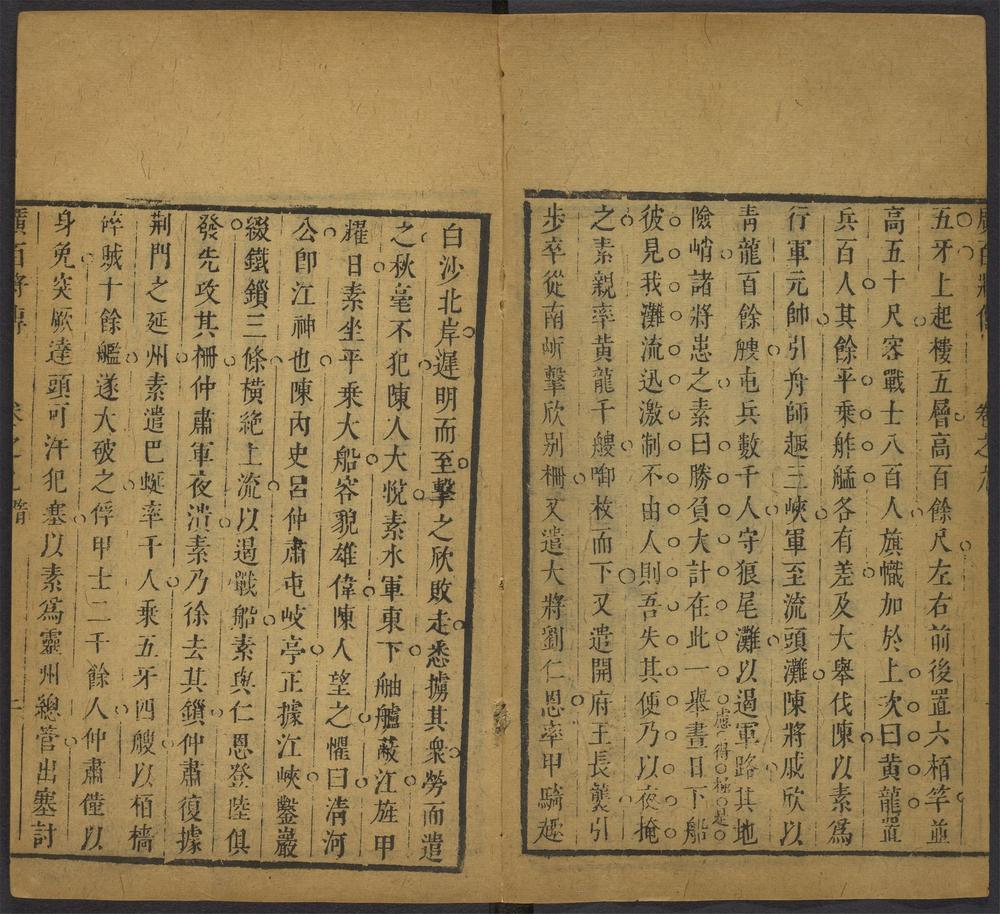 廣百將傳 卷之八
五牙上起樓五層高百餘尺左右前後置六栢竿並
高五十尺容戰士八百人旗幟加於上次曰黃龍置
兵百人其餘平乘舴艋各有差及大舉伐陳以素爲
行軍元帥引舟師趣三峽軍至流頭灘陳將戚欣以
靑龍百餘艘屯兵數千人守狼尾灘以遏軍路其地
險峭諸將患之素曰勝負大計在此一舉晝日下船
慮得極是
彼見我灘流迅激制不由人則吾失其便乃以夜掩
之素親率黃龍千艘啣枚而下又遣開府王長襲引
步卒從南岸擊欣別柵又遣大將劉仁恩率甲騎趣
白沙北岸遲明而至擊之欣敗走悉擄其衆勞而遣
之秋毫不犯陳人大悅素水軍東下舳艫蔽江旌甲
耀日素坐平乘大船容貌雄偉陳人望之懼曰清河
公卽江神也陳內史呂仲肅屯岐亭正據江峽鑿巖
綴鐵鎖三條橫絕上流以遏戰船素與仁恩登陸俱
發先攻其柵仲肅軍夜潰素乃徐去其鎖仲肅復據
荆門之延州素遣巴蜒率千人乘五牙四艘以栢檣
碎賊十餘艦遂大破之俘甲士二千餘人仲肅僅以
身免突厥達頭可汗犯塞以素爲靈州總管出塞討
廣百將傳 卷之 隋